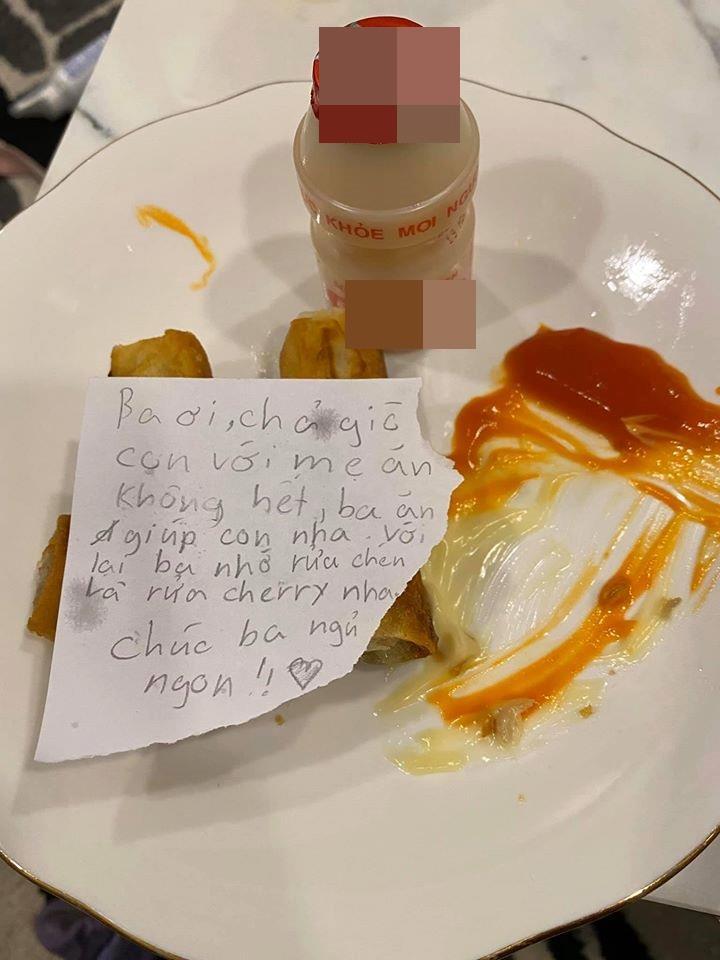 KHỎE MỌI NGƯ
Ba ơi, chả giò
con với mẹ ăn
không hết, ba ăn
giúp con nha. Với
lại ba nhớ rửa chén
và rửa cherry nha
chúc ba ngủ
ngon !! ♡